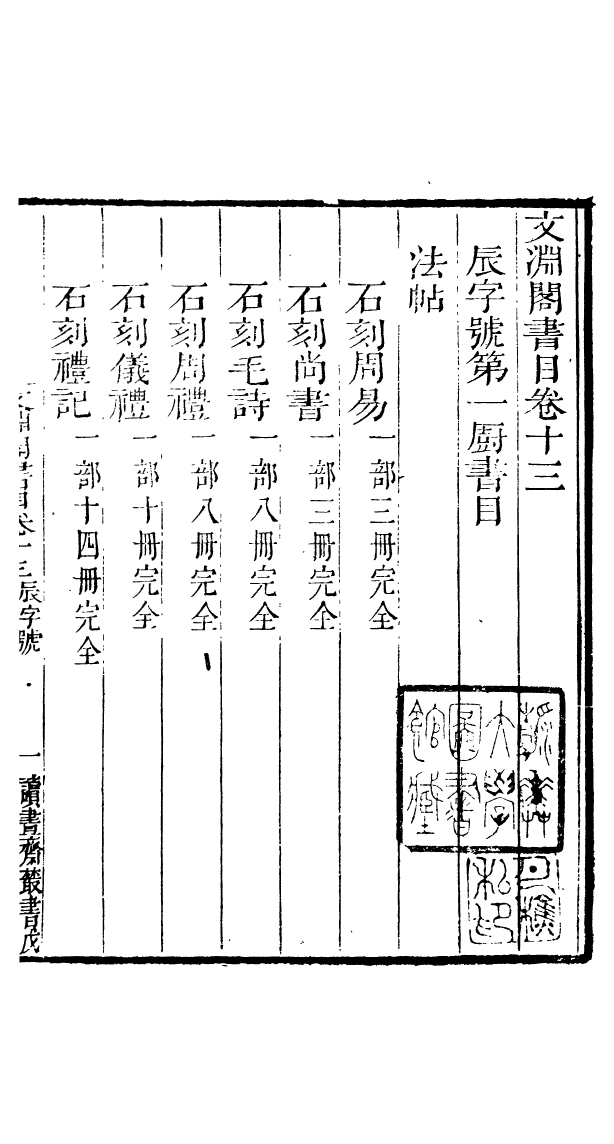 文淵閣書目卷十三
辰字號第一廚書目
法帖
石刻周易一部三冊完全
石刻尚書一部三冊完全
石刻毛詩一部八冊完全
石刻周禮一部八冊完全
石刻儀禮一部十冊完全
石刻禮記一部十四冊完全
文淵閣書目卷十三辰字號 一 讀書齋叢書戊
大學
圖書
館藏
私印